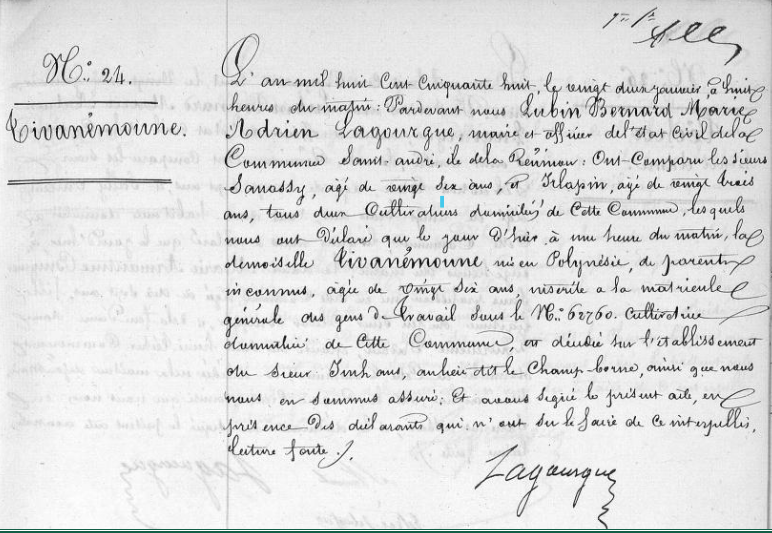 N.° 24.
Tivanémoune.
L'an mil huit cent cinquante huit, le vingt deux janvier, à huit
heures du matin: Pardevant nous Lubin Bernard Marie
Adrien Lagourgue, maire et officier de l'état civil de la
Commune Saint-andré, île de la Réunion: Ont Comparu les sieurs
Sanassy, agé de vingt six ans, et Irlapin, agé de vingt trois
ans, tous deux Cultivateurs domiciliés de Cette Commune, lesquels
nous ont Déclaré que le jour d'hier, à une heure du matin, la
demoiselle Tivanémoune née en Polynésie, de parents
inconnus, agée de vingt six ans, inscrite a la matricule
générale des gens de travail sous le N.° 62760. Cultivatrice
domiciliée de Cette Commune, est décédée sur l'établissement
du Sieur Imhaus, au lieu dit le Champ borne, ainsi que nous
nous en sommes assuré; Et avons signé le présent acte, en
présence des déclarants qui n'ont su le faire de ce interpellés,
lecture faite.
Lagourgue